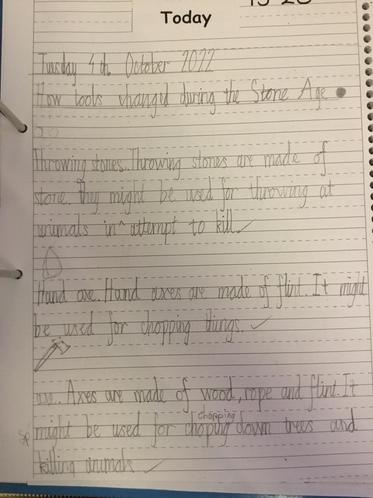 Today
Tuesday 4th October 2022
How tools changd during the Stone Age
Throwing stones. Throwing stones are made of
stone. They might be used for throwing at
animals in ^ attempt to kill. ✓
Hand axe. Hand axes are made of flint. It might
be used for chopping things. ✓
axe. Axes are made of wood, rope and flint. It
chopping
might be used for choping down trees and
killing animals ✓